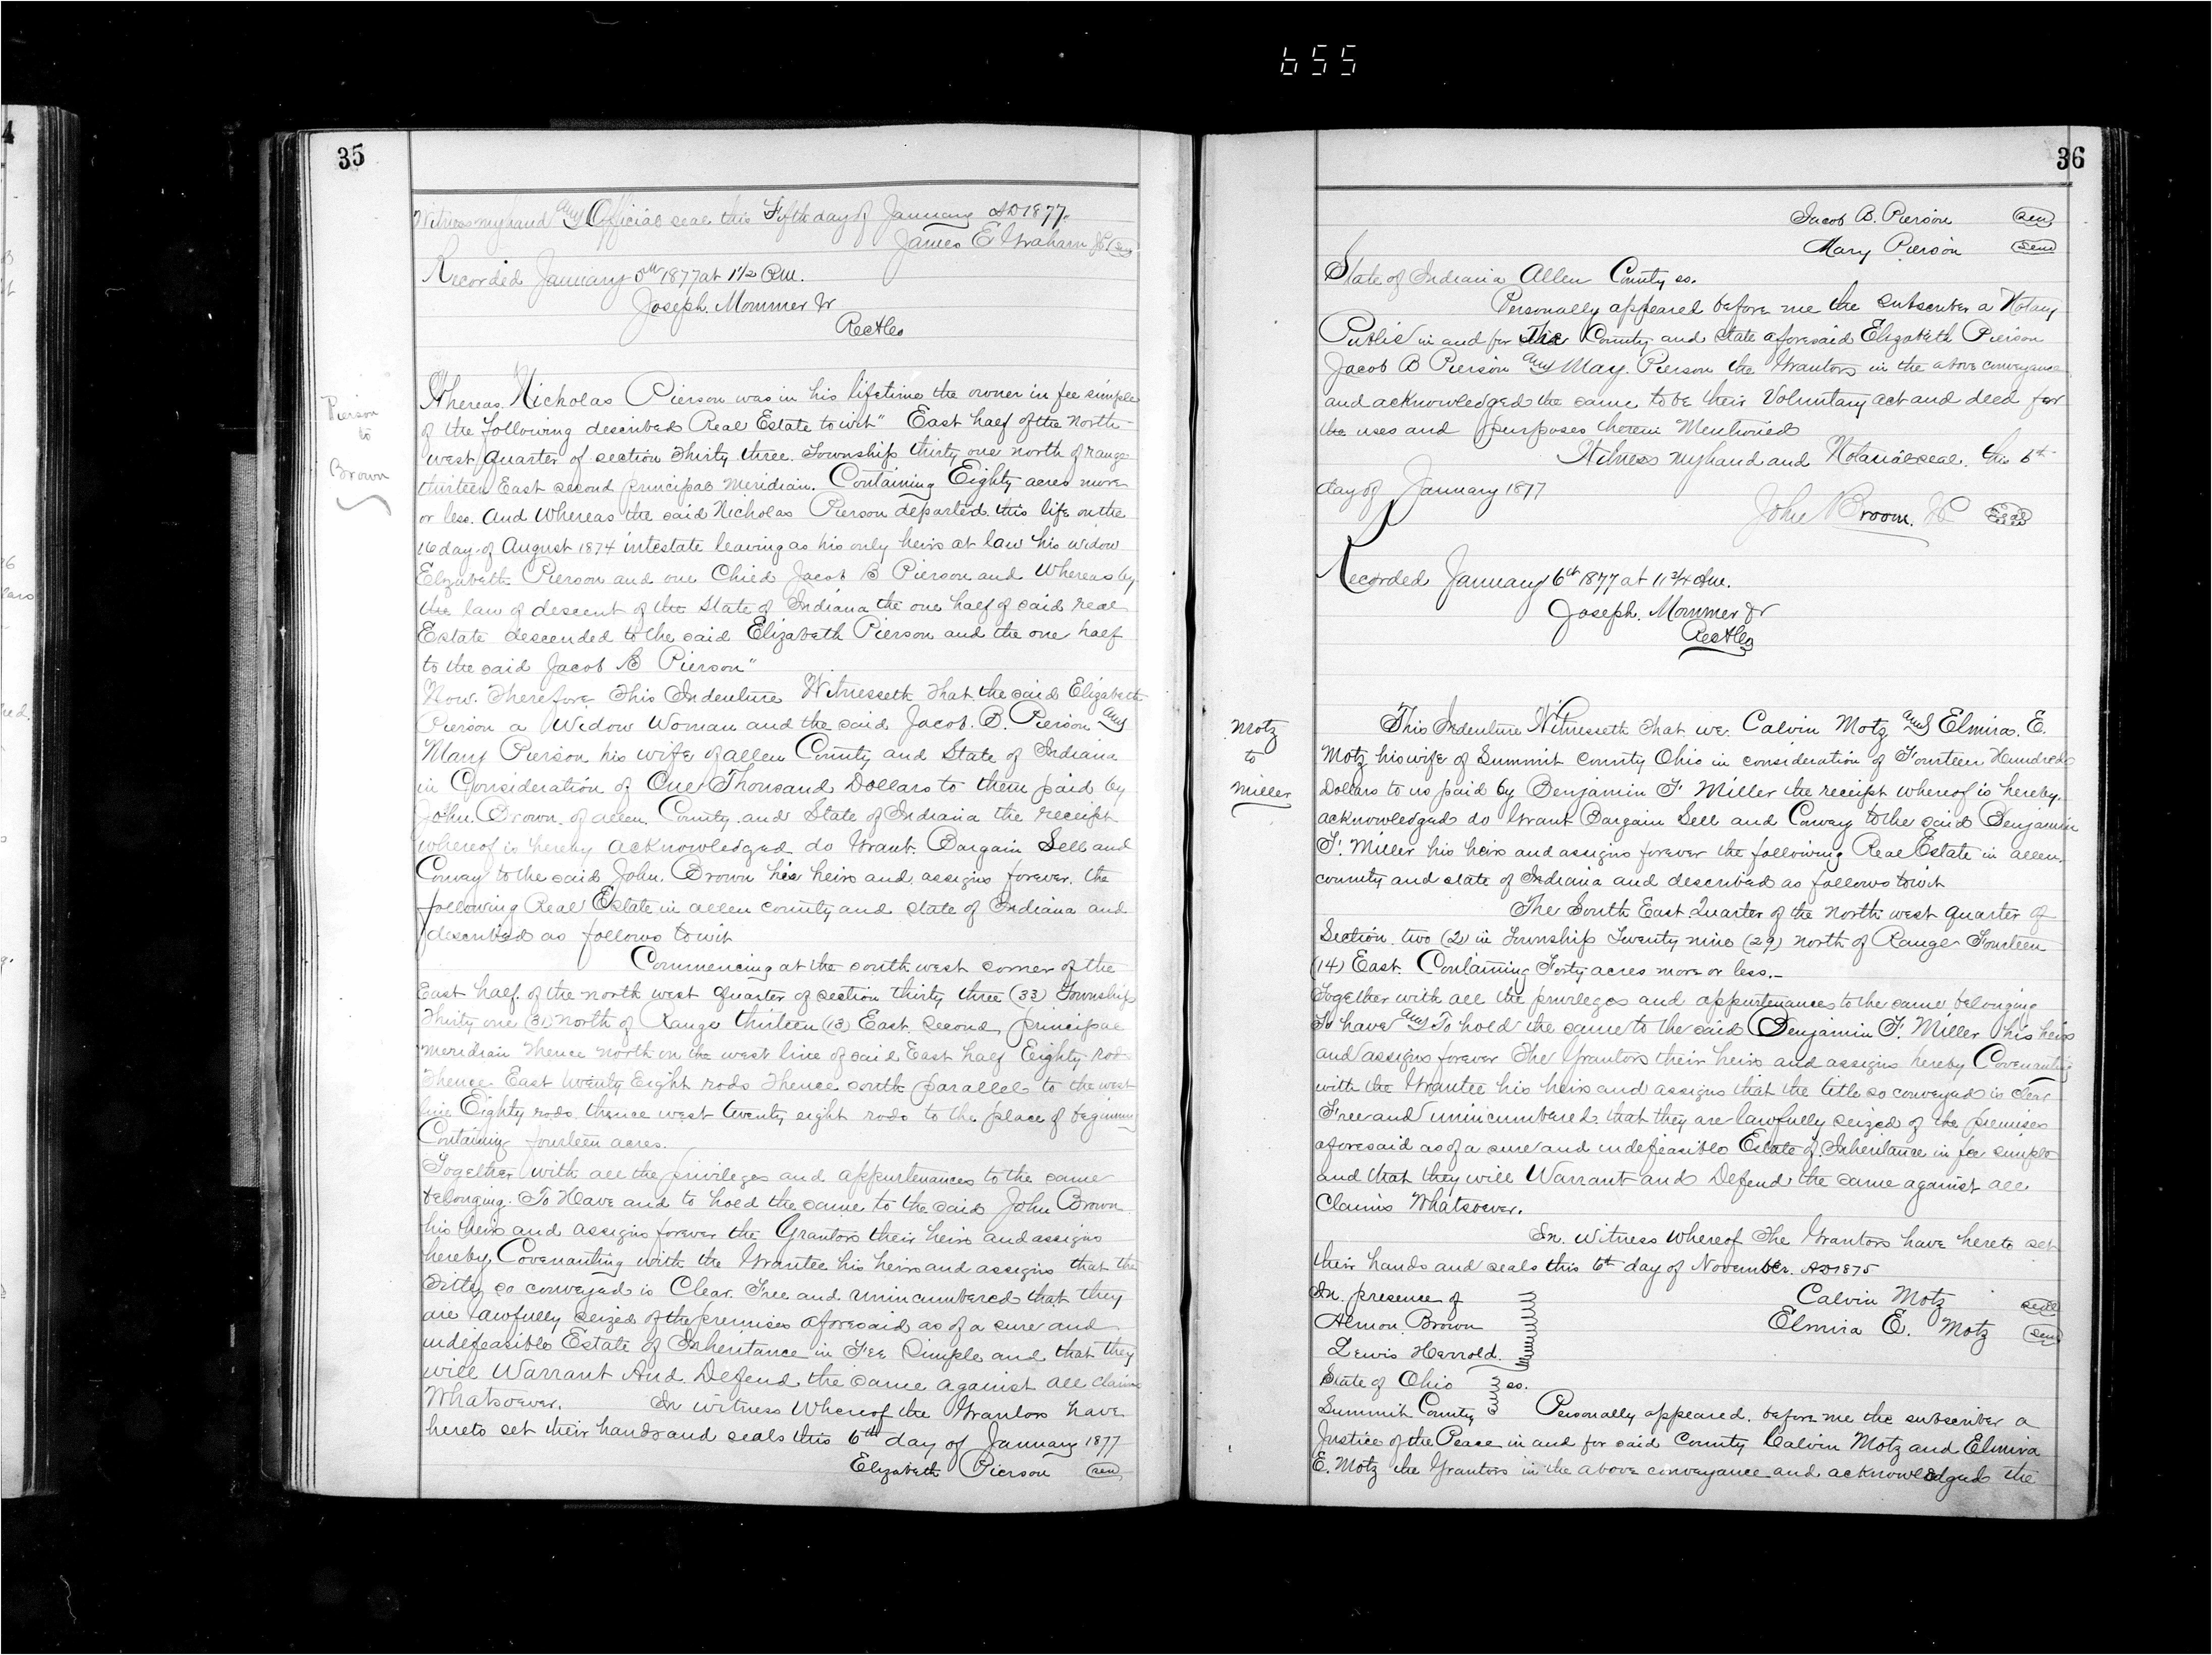 655
4
35
Witness my hand and Official seal this Fifth day of January AD 1877.
James E Graham JP (Seal)
Recorded January 5th 1877 at 1 1/2 P.M.
Joseph. Mommer Jr
Rec ACo
Pierson
to
Brown
Whereas. Nicholas Pierson was in his lifetime the owner in fee simple
of the following described Real Estate to wit" East half of the North
west quarter of section Thirty three. Township thirty one north of range
thirteen East second principal Meridian. Containing Eighty acres more
or less. And Whereas the said Nicholas Pierson departed this life on the
16 day of August 1874 intestate leaving as his only heirs at law his widow
Elizabeth Pierson and one Child Jacob B Pierson and Whereas by
the law of descent of the State of Indiana the one half of said real
Estate descended to the said Elizabeth Pierson and the one half
to the said Jacob B Pierson"
Now. Therefore This Indenture Witnesseth That the said Elizabeth
Pierson a Widow Woman and the said Jacob. B. Pierson and
Mary Pierson his wife of allen County and State of Indiana
in Consideration of One Thousand Dollars to them paid by
John. Brown. of allen. County. and State of Indiana the receipt
whereof is hereby acknowledged do Grant. Bargain Sell and
Convey to the said John. Brown his heirs and assigns forever. the
following Real Estate in allen county and state of Indiana and
described as follows to wit
Commencing at the south west corner of the
East half of the north west quarter of section thirty three (33) Township
Thirty one (31) North of Range thirteen (13) East. Second principal
meridian thence north on the west line of said East half Eighty rod
Thence East twenty Eight rods Thence south parallel to the west
line Eighty rods thence west twenty eight rods to the place of beginning
Containing fourteen acres.
Together with all the privileges and appurtenances to the same
belonging. To Have and to hold the same to the said John Brown
his heirs and assigns forever the Grantors their heirs and assigns
hereby Covenanting with the Grantee his heirs and assigns that the
Title so conveyed is Clear. Free and unincumbered that they
are lawfully seized of the premises aforesaid as of a sure and
indefeasible Estate of Inheritance in Fee Simple and that they
will Warrant And Defend the same against all claims
Whatsoever. In witness Whereof the Grantors have
hereto set their hands and seals this 6th day of January 1877
Elizabeth Pierson (Seal)
36
Jacob B. Pierson (Seal)
Mary Pierson (Seal)
State of Indiana Allen County ss.
Personally appeared before me the subscriber a Notary
Public in and for The County and State aforesaid Elizabeth Pierson
Jacob B Pierson and May. Pierson the Grantors in the above conveyance
and acknowledged the same to be their Voluntary act and deed for
the uses and purposes herein Mentioned
Witness my hand and Notarial seal. this 6th
day of January 1877
John Broom. (Seal)
Recorded January 6th 1877 at 11 3/4 A.M.
Joseph. Mommer Jr
Rec ACo
Motz
to
Miller
This Indenture Witnesseth That we. Calvin Motz and Elmira. E.
Motz his wife of Summit County Ohio in consideration of Fourteen Hundred
Dollars to us paid by Benjamin F. Miller the receipt whereof is hereby
acknowledged do Grant Bargain Sell and Convey to the said Benjamin
F. Miller his heirs and assigns forever the following Real Estate in allen.
county and state of Indiana and described as follows to wit
The South East Quarter of the north west quarter of
Section. two (2) in Township Twenty nine (29) north of Range Fourteen
(14) East. Containing Forty acres more or less.
Together with all the privileges and appurtenances to the same belonging
To have and To hold the same to the said Benjamin F. Miller his heirs
and assigns forever The Grantors their heirs and assigns hereby Covenanting
with the Grantee his heirs and assigns that the title so conveyed is Clear
Free and unincumbered. that they are lawfully seized of the premises
aforesaid as of a sure and indefeasible Estate of Inheritance in fee simple
and that they will Warrant and Defend the same against all
Claims Whatsoever.
In. Witness Whereof The Grantors have hereto set
their hands and seals this 6th day of November. AD 1875
In. presence of Calvin Motz (Seal)
Almon. Brown Elmira E. Motz (Seal)
Lewis Herrold.
State of Ohio ss.
Summit County Personally appeared. before me the subscriber a
Justice of the Peace in and for said County Calvin Motz and Elmira
E. Motz the Grantors in the above conveyance and acknowledged the